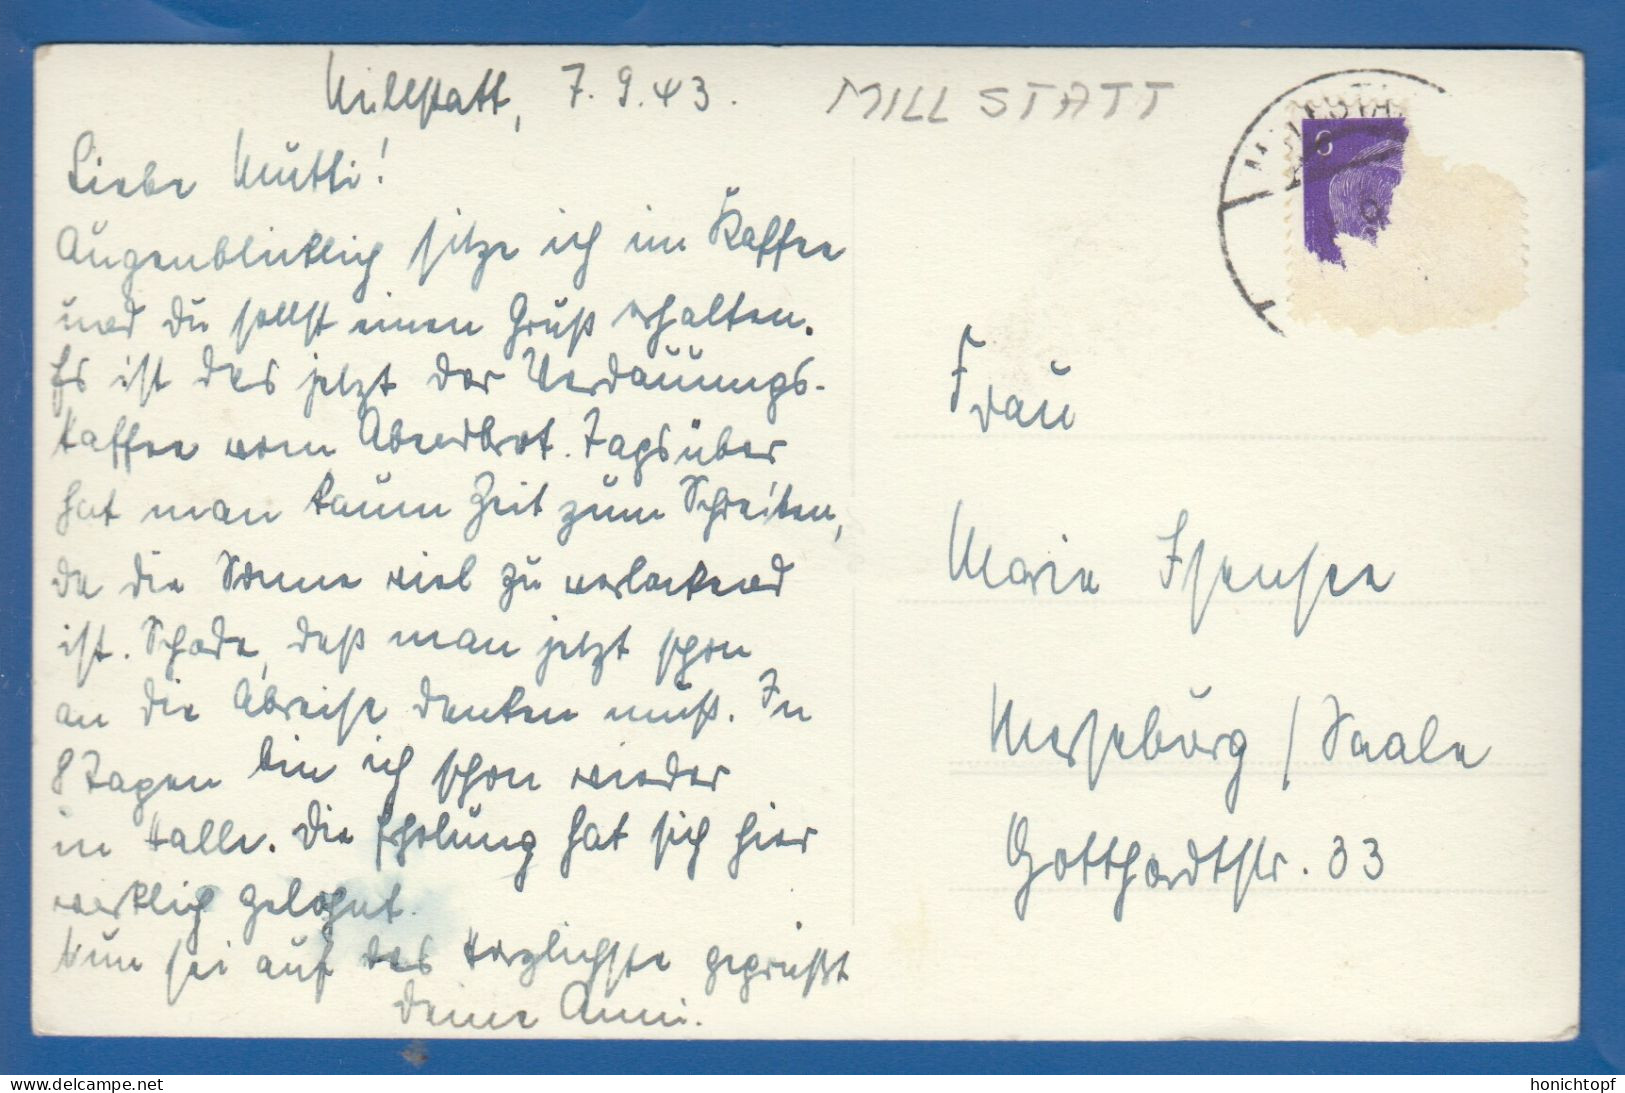 Millstatt, 7.9.43.
MILLSTATT
Liebe Mutti!
Augenblicklich sitze ich im Kaffee
und du sollst einen Gruß erhalten.
Es ist das jetzt der Verdauungs-
kaffee vom Abendbrot. Tagsüber
hat man kaum Zeit zum Schreiben,
da die Sonne viel zu verlockend
ist. Schade, daß man jetzt schon
an die Abreise denken muß. In
8 Tagen bin ich schon wieder
in Halle. Die Erholung hat sich hier
wirklich gelohnt.
Nun sei auf das Herzlichste gegrüßt
Deine Anni.
6
Frau
Marie Isensee
Merseburg / Saale
Gotthardtstr. 33
honichtopf